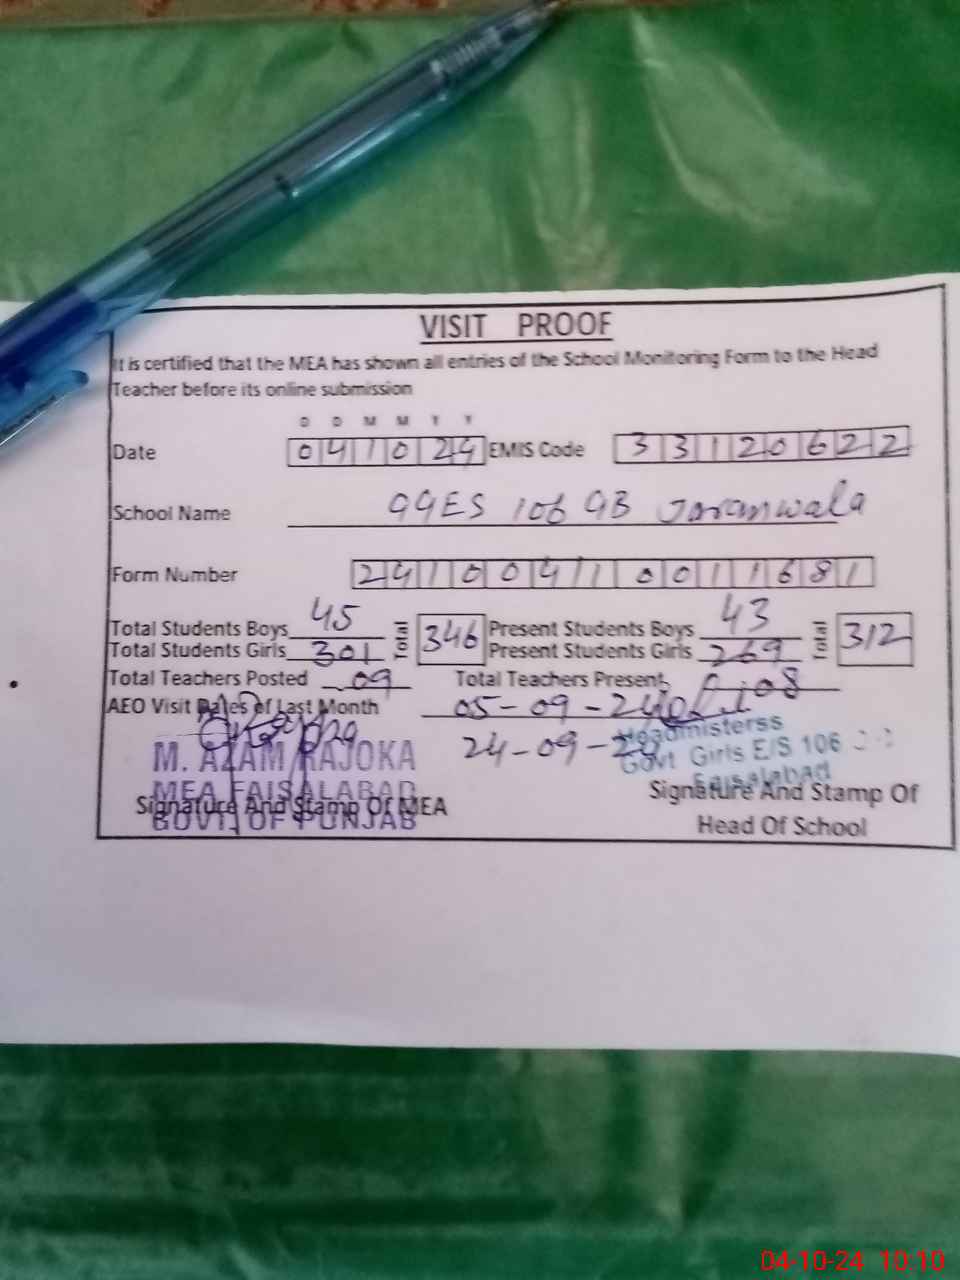 VISIT PROOF
It is certified that the MEA has shown all entries of the School Monitoring Form to the Head
Teacher before its online submission
D D M M Y Y
Date 041024 EMIS Code 33120622
School Name GGES 106 GB Jaranwala
Form Number 241004100111681
Total Students Boys 45 Total 346 Present Students Boys 43 Total 312
Total Students Girls 301 Present Students Girls 269
Total Teachers Posted 09 Total Teachers Present 08
AEO Visit Dates of Last Month 05-09-24
24-09-24
M. AZAM RAJOKA
MEA FAISALABAD
GOVT. OF PUNJAB
Signature And Stamp Of MEA
Headmisterss
Govt Girls E/S 106
Faisalabad
Signature And Stamp Of
Head Of School
04-10-24 10:10